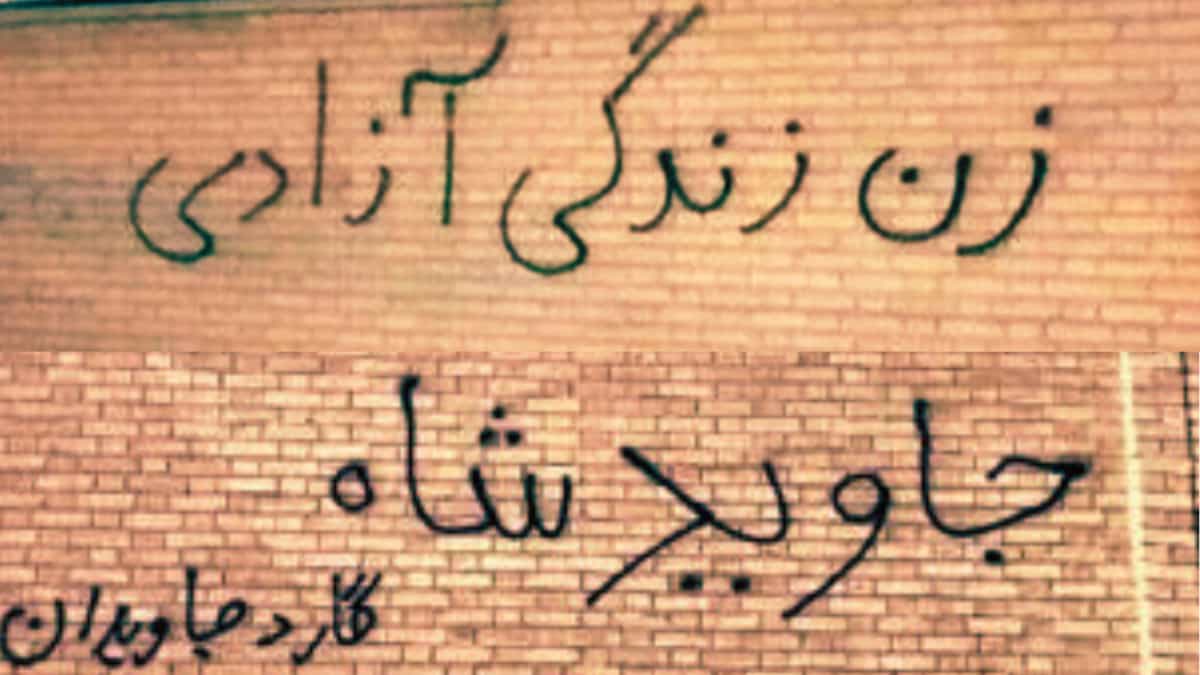 زن زندگی آزادی
جاوید شاه
گارد جاویدان